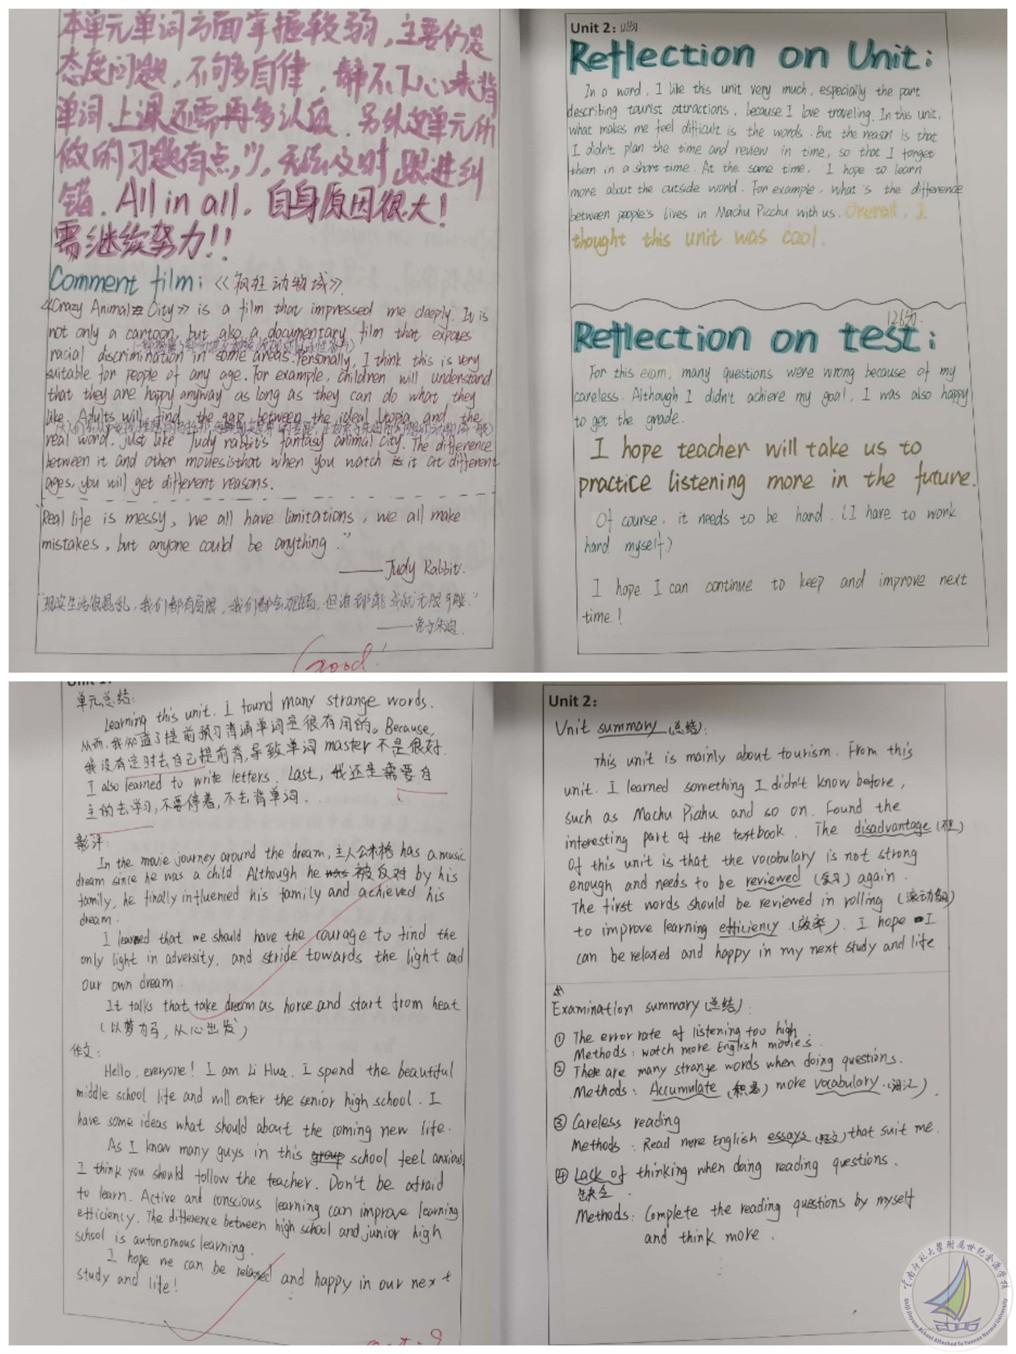 本单元单词方面掌握较弱，主要仍是
态度问题，不够自律，静不下心来背
单词，上课还需再多认真，另外这单元所
做的习题有点少，无法及时跟进纠
错。All in all，自身原因很大！
需继续努力！！
Comment film：《疯狂动物城》
《Crazy Animal City》 is a film that impressed me deeply. It is
not only a cartoon, but also a documentary film that exposes
racial discrimination in some areas. Personally, I think this is very
suitable for people of any age. For example, children will understand
that they are happy anyway as long as they can do what they
like. Adults will find the gap between the ideal Utopia and the
real word. just like Judy rabbit's fantasy animal city. The difference
between it and other movies is that when you watch it at different
ages, you will get different reasons.
"Real life is messy, we all have limitations, we all make
mistakes, but anyone could be anything."
—— Judy Rabbit.
"现实生活很混乱，我们都有局限，我们都会犯错，但
——兔子朱迪
Good!
Unit 2：
Reflection on Unit：
In a word, I like this unit very much, especially the part
describing tourist attractions, because I love traveling. In this unit,
what makes me feel difficult is the words. But the reason is that
I didn't plan the time and review in time, so that I forget
them in a short time. At the same time, I hope to learn
more about the outside world. For example, what's the difference
between people's lives in Machu Picchu with us. Overall, I
thought this unit was cool.
126分
Reflection on test：
For this exam, many questions were wrong because of my
careless. Although I didn't achieve my goal, I was also happy
to get the grade.
I hope teacher will take us to
practice listening more in the future.
Of course, it needs to be hard. (I have to work
hard myself.)
I hope I can continue to keep and improve next
time!
Unit 1:
单元总结：
Learning this unit. I found many strange words.
从而，我知道了提前预习背诵单词是很有用的。Because,
我没有定时去自己提前背，导致单词 master 不是很好.
I also learned to write letters. Last, 我还是需要自
主的去学习，不要停着，不去背单词.
影评：
In the movie journey around the dream, 主人公木格 has a music
dream since he was a child. Although he was 被反对 by his
family, he finally influenced his family and achieved his
dream.
I learned that we should have the courage to find the
only light in adversity, and stride towards the light and
our own dream.
It talks that take dream as horse and start from heat
（以梦为马，从心出发）
作文：
Hello, everyone! I am Li Hua. I spend the beautiful
middle school life and will enter the senior high school. I
have some ideas what should about the coming new life.
As I know many guys in this group school feel anxious,
I think you should follow the teacher. Don't be afraid
to learn. Active and conscious learning can improve learning
efficiency. The difference between high school and junior high
school is autonomous learning.
I hope we can be relaxed and happy in our next
study and life!
Unit 2：
Unit summary（总结）:
This unit is mainly about tourism. From this
unit. I learned something I didn't know before,
such as Machu Pichu and so on. Found the
interesting part of the textbook. The disadvantage
Of this unit is that the vocabulary is not strong
enough and needs to be reviewed（复习）again.
The first words should be reviewed in rolling（滚动复习）
to improve learning efficiency.（效率）. I hope I
can be relaxed and happy in my next study and life
Examination summary（总结）:
① The error rate of listening too high.
Methods: watch more English movies.
② There are many strange words when doing questions.
Methods: Accumulate（积累）more vocabulary.（词汇）
③ Careless reading
Methods: Read more English essays that suit me.
④ Lack of thinking when doing reading questions.
缺乏
Methods: Complete the reading questions by myself
and think more.
云南师范大学附属世纪金源学校